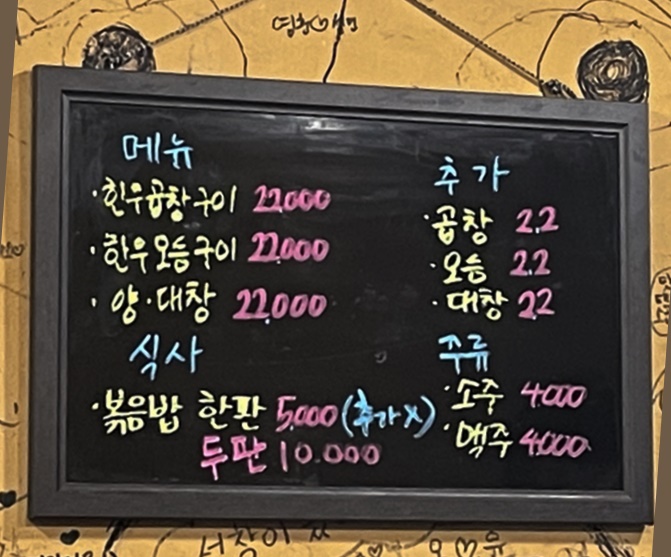 메뉴
·한우곱창구이 22.000
·한우모듬구이 22.000
·양·대창 22.000
식사
·볶음밥 한판 5.000 (추가X)
두판 10.000
추가
·곱창 2.2
·모듬 2.2
·대창 2.2
주류
·소주 4.000
·맥주 4.000